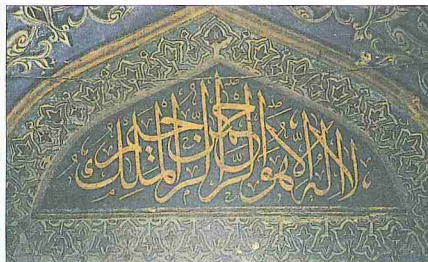 لا اله الا هو الرحمن الرحيم الملك